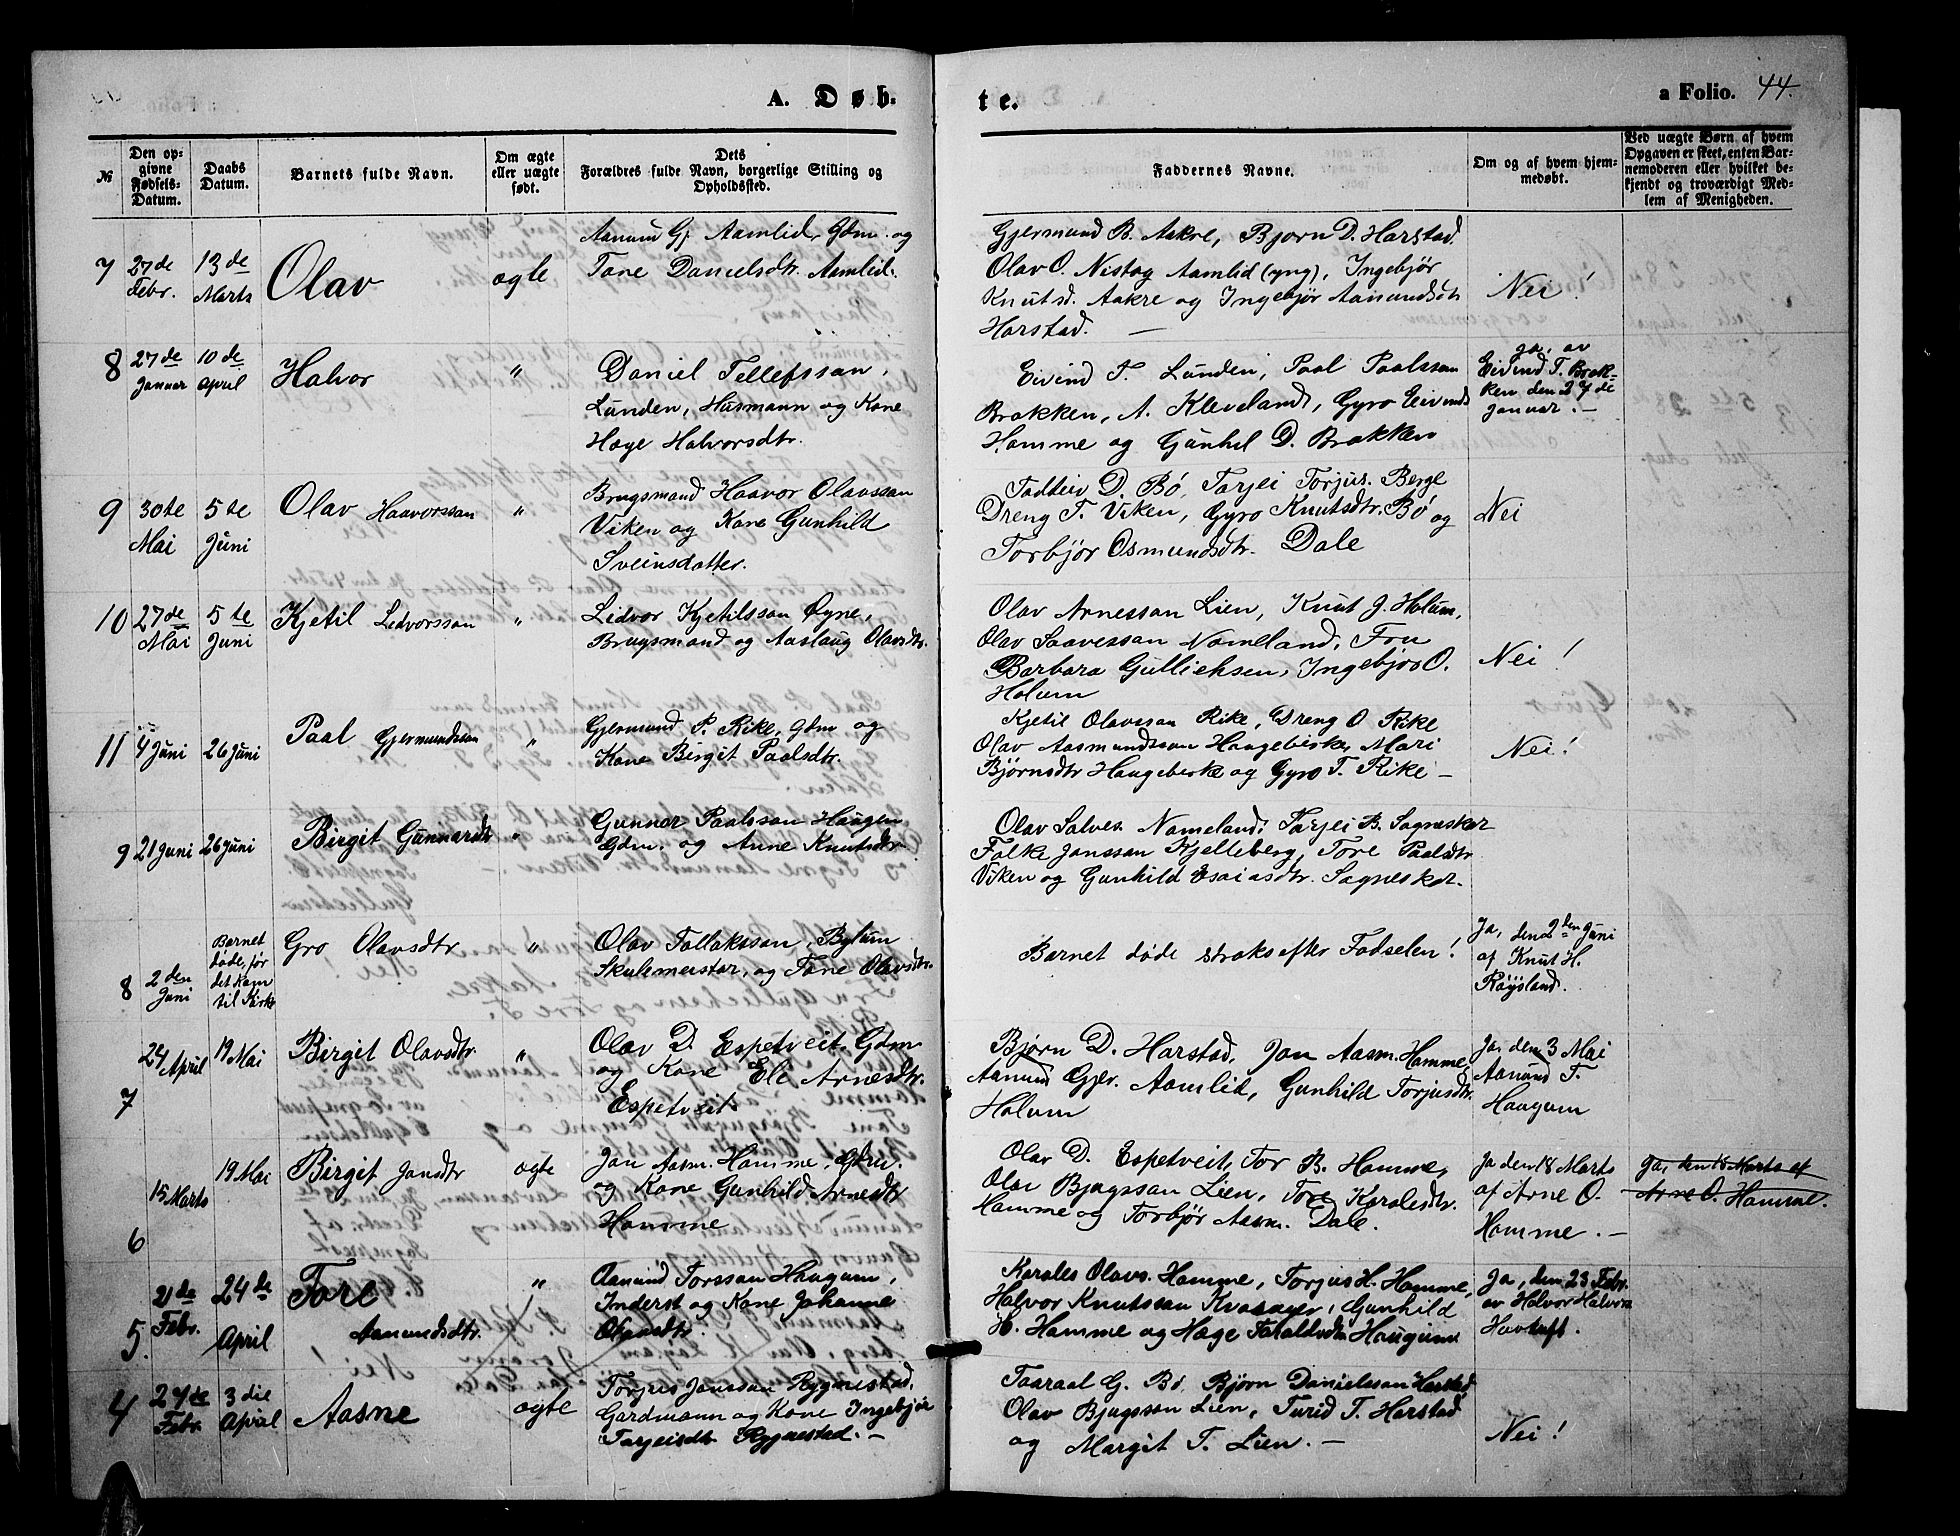 A. Døb-
te.
a Folio. 44.
№
Den op-
givne
Fødsels-
Datum.
Daabs
Datum.
Barnets fulde Navn.
Om ægte
eller uægte
født.
Dets
Forældres fulde Navn, borgerlige Stilling og
Opholdssted.
Faddernes Navne.
Om og af hvem hjem-
medøbt.
Ved uægte Børn af hvem
Opgaven er skeet, enten Bar-
nemoderen eller hvilket be-
kjendt og troværdigt Med-
lem af Menigheden.
7
27de
Febr.
13de
Marts
Olav
ogte
Aanund Gj. Aamlid, Gdm. og
Tone Danielsdtr. Aamlid.
Gjermund B. Aakre, Bjorn D. Harstad
Olav O. Nistog Aamlid (yng), Ingebjør
Knutsd. Aakre og Ingebjør Aanundsdtr
Harstad. —
Nei!
8
27de
Januar
10de
April
Halvor
"
Daniel Tellefssan,
Lunden, Husmann og Kone
Hæge Halvorsdtr.
Eivind T. Lunden, Paal Paalsson
Brokken, A. Kleveland, Gyro Eivinds
Homme og Gunhil D. Brokken
ja, av
Eivind T. Brok-
ken den 27de
Januar. —
9
30te
Mai
5te
Juni
Olav Haavorssan
"
Brugsmand Haavor Olavssan
Viken og Kone Gunhild
Sveinsdatter.
Tadleiv D. Bø, Tarjei Torjus. Berge
Dreng T. Viken, Gyro Knutsdtr. Bø og
Torbjør Osmundsdtr. Dale
Nei
10
27de
Mai
5te
Juni
Kjetil Lidvorssan
"
Lidvor Kjetilssan Øyne,
Brugsmand og Aaslaug Olavsdtr.
Olav Arnessan Lien, Knut J. Holum,
Olav Saavessan Nomeland, Fru
Barbara Gullichsen, Ingebjor O.
Holum
Nei!
11
4 Juni
26 Juni
Paal Gjermundssan
"
Gjermund P. Rike, Gdm og
Kone Birgit Paalsdtr.
Kjetil Olavssan Rike, Dreng O Rike
Olav Aasmundssan Haugebirke, Mari
Bjørnsdtr Haugebirke og Gyro T. Rike —
Nei!
9
21 Juni
26 Juni
Birgit Gunnarsdtr
"
Gunnar Paalssan Haugen
Gdm. og Anne Knutsdtr.
Olav Salves. Nomeland, Tarjei B. Sagneskar
Folke Janssan Kjelleberg, Tore Paalsdtr.
Viken og Gunhild Esaiasdtr. Sagneskar.
8
2den
Juni
Barnet
døde, før
det kom
til Kirke
Gro Olavsdtr
"
Olav Tallakssan, Bylum
Skulemeistar, og Tone Olavsdtr.
Barnet døde straks efter Fødselen!
Ja, den 2den Juni
af Knut H.
Røysland.
7
24 April
19 Mai
Birgit Olavsdtr.
"
Olav D. Espetveit, Gdm
og Kone Eli Arnesdtr.
Espetveit
Bjørn D. Harstad, Jon Aasm. Homme,
Aanund Gjer. Aamlid, Gunhild Torjusdtr.
Holum
Ja, den 3 Mai
Aanund T.
Haugum
6
15 Marts
19 Mai
Birgit Jonsdtr
ogte
Jon Aasm. Homme, Gdm.
og Kone Gunhild Arnesdtr
Homme
Olav D. Espetveit, Tor B. Homme,
Olav Bjugssan Lien, Tore Karolesdtr.
Homme og Torbjør Aasm. Dale.
Ja den 18 Marts
af Arne O.
Homme. —
Ja, den 18 Marts af
Arne O. Homme.
5
21de
Febr.
24de
April
Tore
Aanundsdtr.
"
Aanund Torssan Haugum,
Inderst og Kone Johanne
Olavsdtr.
Karoles Olavs. Homme, Torjus H. Homme,
Halvor Knutssan Kvasager, Gunhild
H. Homme og Hæge Taraldsdtr Haugum
Ja, den 23 Febr.
av Halvor Halvors.
4
27de
Febr.
3die
April
Aasne
ogte
Torjus Jonssan Rygnestad,
Gardmann og Kone Ingebjør
Tarjeisdtr. Rygnestad. —
Taaraal G. Bø, Bjørn Danielssan Harstad
Olav Bjugssan Lien, Turid T. Harstad
og Margit T. Lien. —
Nei!